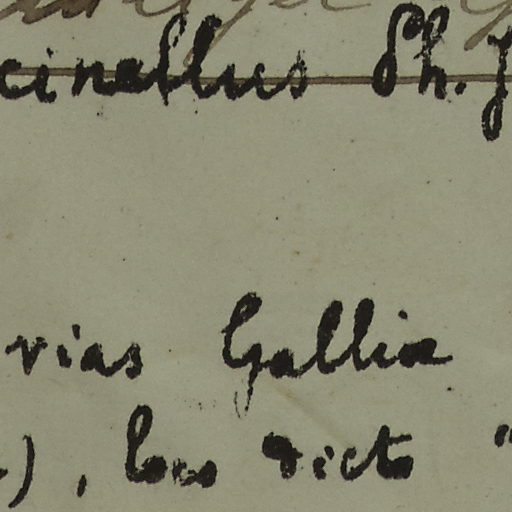 cinellus Ph. J
vias Galliæ
), loco dicto "